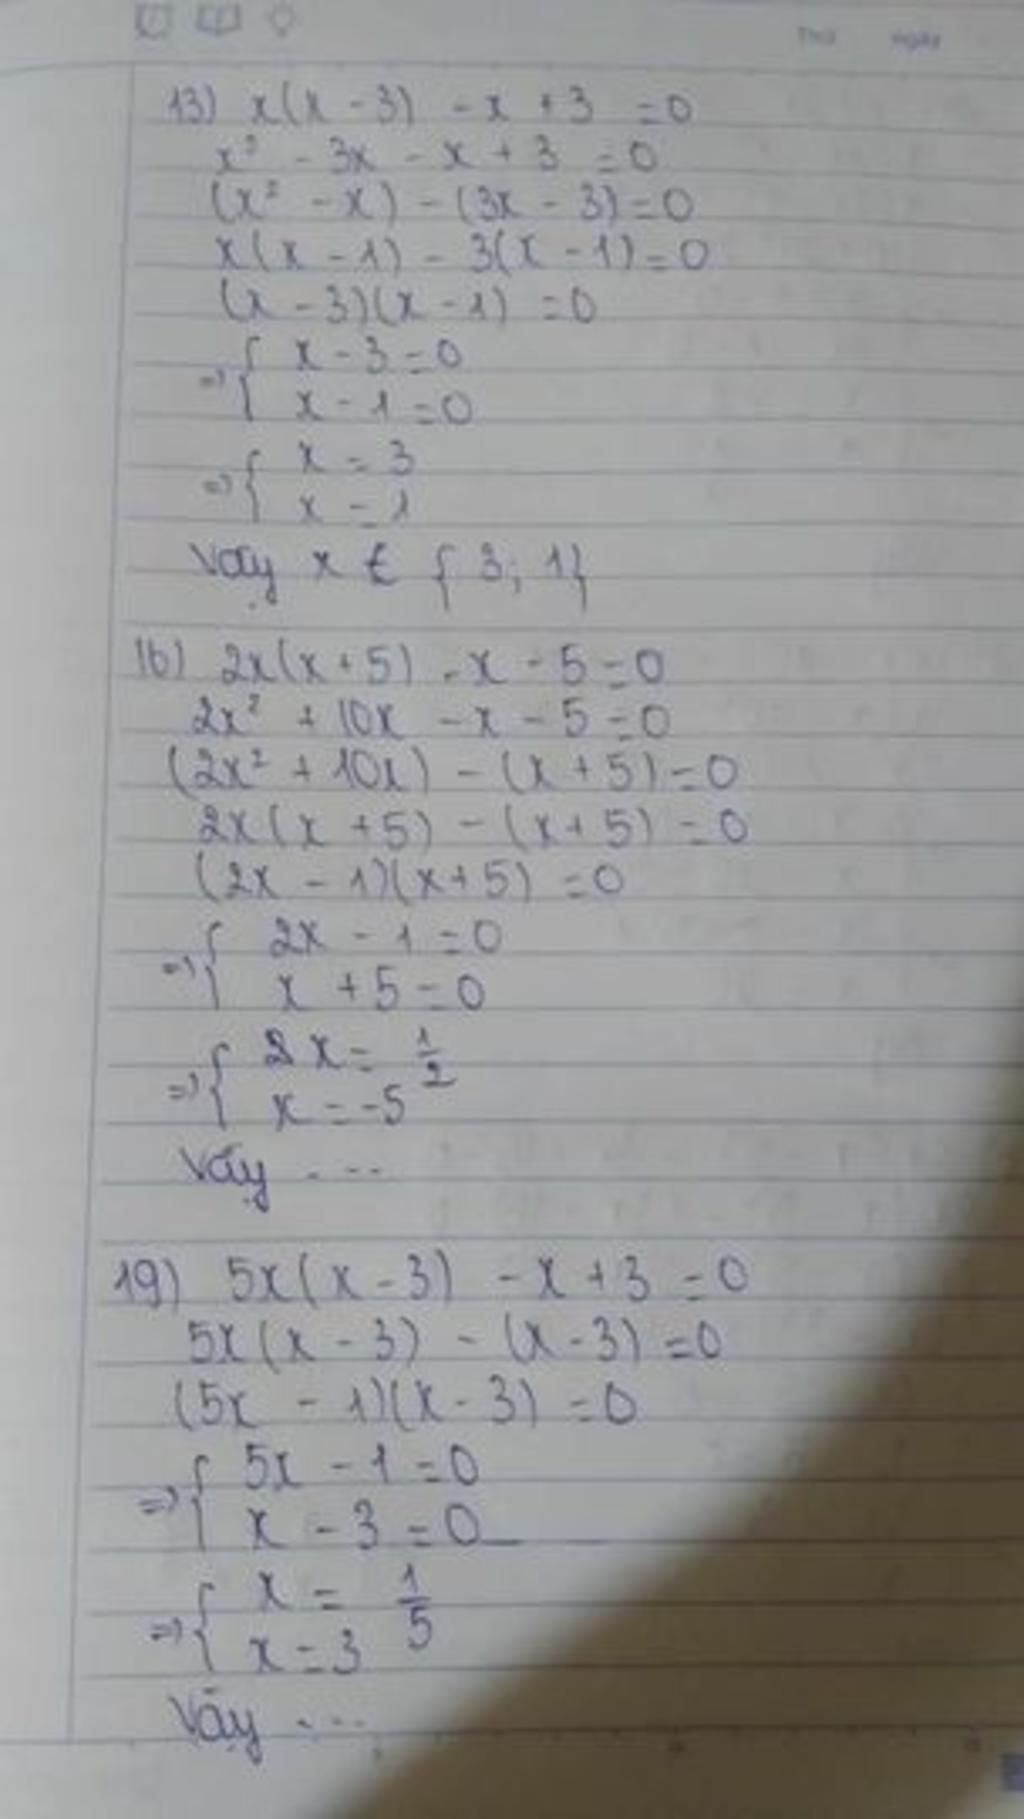 Thứ ngày
13) x(x - 3) - x + 3 = 0
x² - 3x - x + 3 = 0
(x² - x) - (3x - 3) = 0
x(x - 1) - 3(x - 1) = 0
(x - 3)(x - 1) = 0
=> { x - 3 = 0
x - 1 = 0
=> { x = 3
x = 1
Vậy x ∈ { 3; 1}
16) 2x(x + 5) - x - 5 = 0
2x² + 10x - x - 5 = 0
(2x² + 10x) - (x + 5) = 0
2x(x + 5) - (x + 5) = 0
(2x - 1)(x + 5) = 0
=> { 2x - 1 = 0
x + 5 = 0
=> { 2x = 1/2
x = -5
Vậy ....
19) 5x(x - 3) - x + 3 = 0
5x(x - 3) - (x - 3) = 0
(5x - 1)(x - 3) = 0
=> { 5x - 1 = 0
x - 3 = 0
=> { x = 1/5
x = 3
Vậy ....